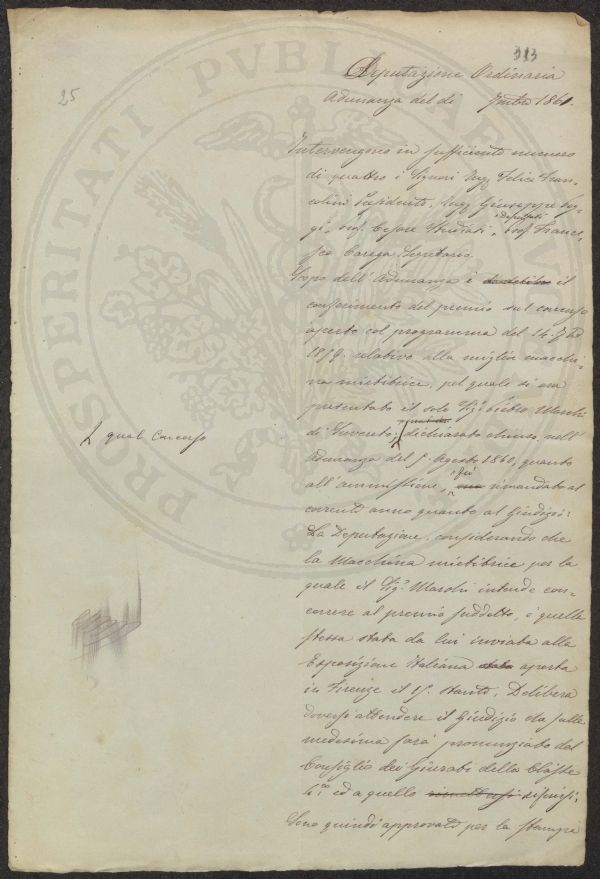 25
913
Deputazione Ordinaria
Adunanza del dì 7mbre 1861.
Intervengono in sufficiente numero
di quattro i Signori Ing. Felice Fran-
colini Presidente, Ing. Giuseppe
deputati
Prof. Cesare Studiati, Prof. France-
sco Carega Segretario.
Scopo dell'Adunanza è il
conferimento del premio sul concorso
aperto col programma del 14.
1859. relativo alla miglior macchi-
na mietitrice, pel quale si era
presentato il solo Sig.
di dichiarato chiuso, nell'
qual Concorso
Adunanza del 5. Agosto 1860, quanto
all'ammissione, fu rimandato al
corrente anno quanto al Giudizio:
La Deputazione, considerando che
la Macchina mietitrice per la
quale il Sig. intende con-
correre al premio suddetto, è quella
stessa stata da lui inviata alla
Esposizione Italiana stata aperta
in Firenze il 15. stante, Delibera
doversi attendere il Giudizio che sulla
medesima sarà pronunziato dal
Consiglio dei Giurati della Classe
ed a quello riferirsi.
Sono quindi approvati per la stampa
PROSPERITATI PVBLICAE